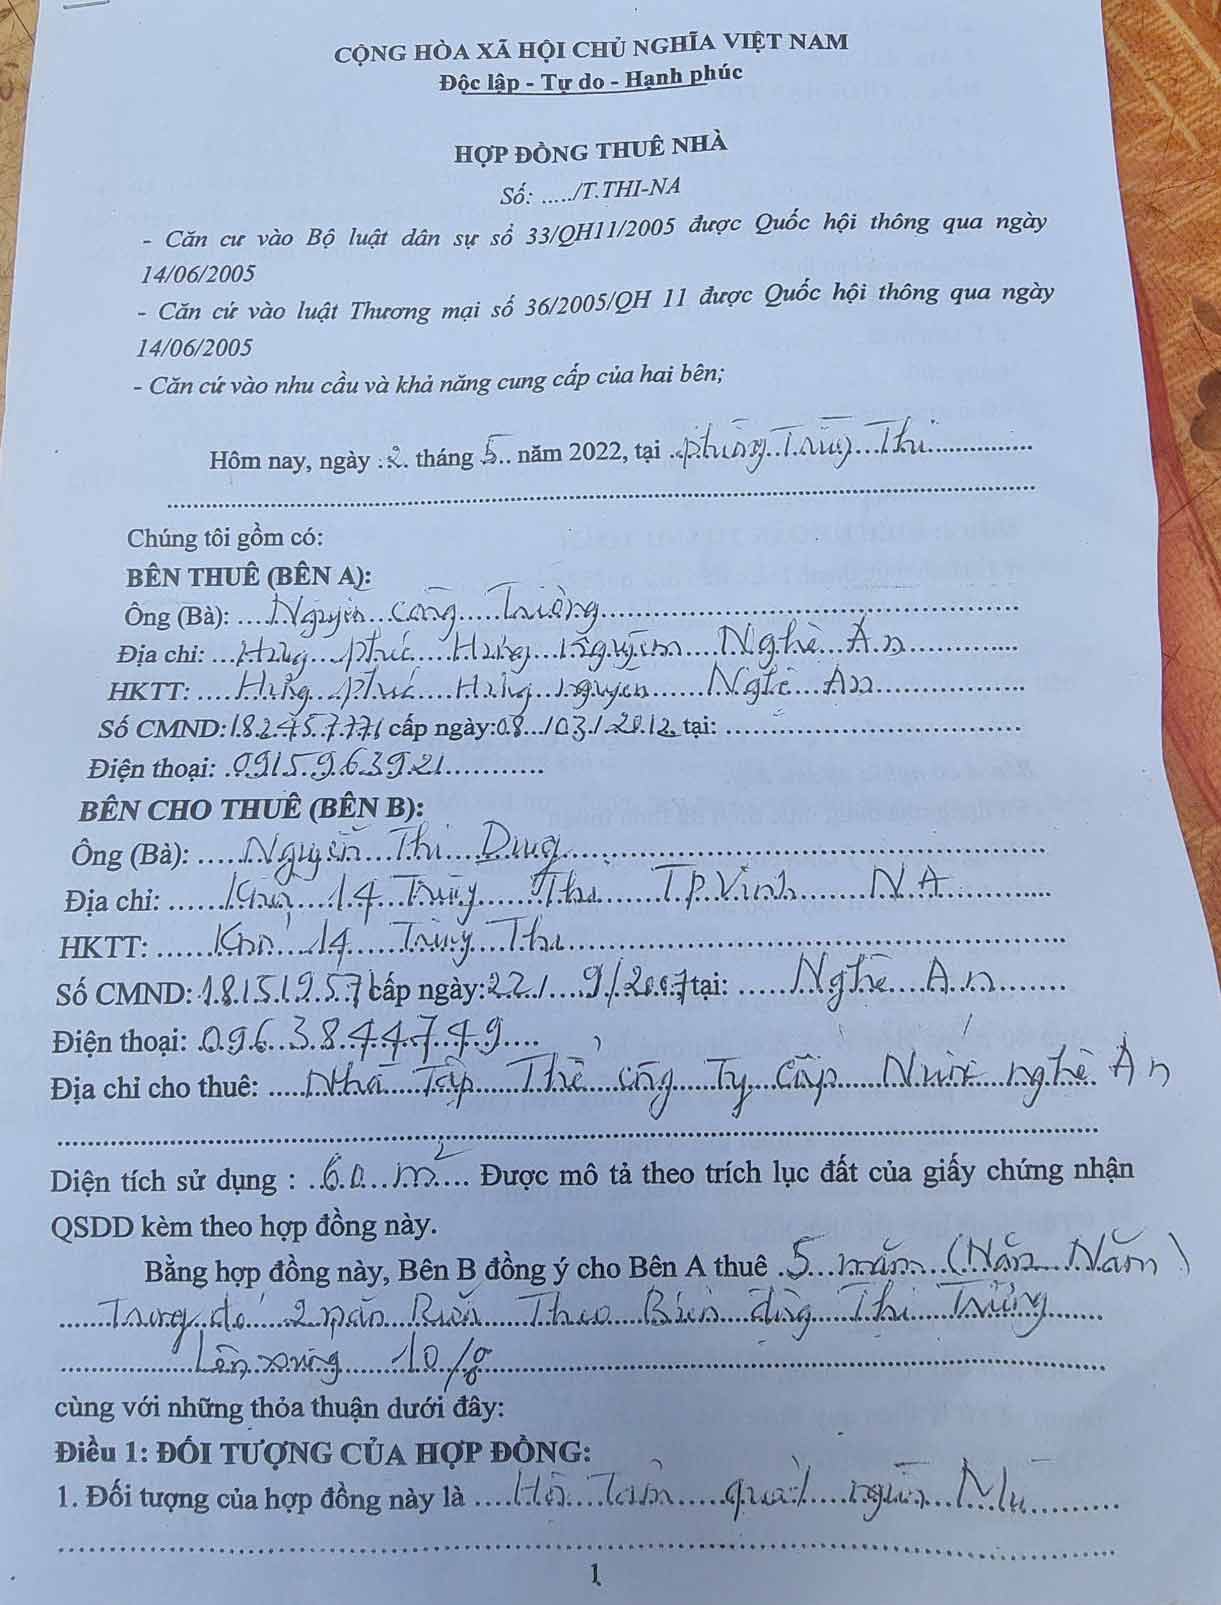 CỘNG HÒA XÃ HỘI CHỦ NGHĨA VIỆT NAM
Độc lập - Tự do - Hạnh phúc
HỢP ĐỒNG THUÊ NHÀ
Số: ...../T.THI-NA
- Căn cư vào Bộ luật dân sự số 33/QH11/2005 được Quốc hội thông qua ngày
14/06/2005
- Căn cứ vào luật Thương mại số 36/2005/QH 11 được Quốc hội thông qua ngày
14/06/2005
- Căn cứ vào nhu cầu và khả năng cung cấp của hai bên;
Hôm nay, ngày 2 tháng 5 năm 2022, tại phường Trung Thi
Chúng tôi gồm có:
BÊN THUÊ (BÊN A):
Ông (Bà): Nguyễn Công Trường
Địa chỉ: Hưng phúc Hưng Nguyên Nghệ An
HKTT: Hưng phúc Hưng nguyên Nghệ An
Số CMND: 182457771 cấp ngày: 08/03/2012 tại:
Điện thoại: 0915963921
BÊN CHO THUÊ (BÊN B):
Ông (Bà): Nguyễn Thi Dung
Địa chỉ: 14 Trung Thi TP Vinh N A
HKTT: 14 Trung Thi
Số CMND: 181519571 cấp ngày: 22/9/2007 tại: Nghệ An
Điện thoại: 0963844749
Địa chỉ cho thuê: Nhà Tập Thể công Ty Cấp Nước nghệ An
Diện tích sử dụng : 60 m² Được mô tả theo trích lục đất của giấy chứng nhận
QSDD kèm theo hợp đồng này.
Bằng hợp đồng này, Bên B đồng ý cho Bên A thuê 5 năm (Năm Năm)
Trong đó 2 năm Theo Biến động Thi Trường
Lên xuống 10%
cùng với những thỏa thuận dưới đây:
Điều 1: ĐỐI TƯỢNG CỦA HỢP ĐỒNG:
1. Đối tượng của hợp đồng này là
1